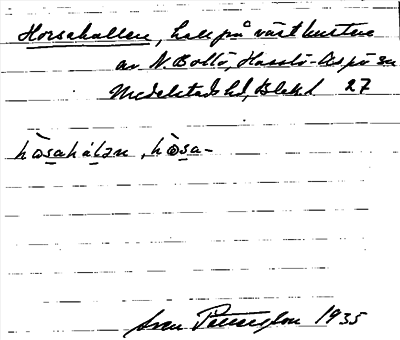 Horsahallen, hall på västkusten
av N. Bollö, Hasslö-Aspö sn
Medelstads hd, Blekl 27
hòsahálən, hòsa-
Sven Pettersson 1935